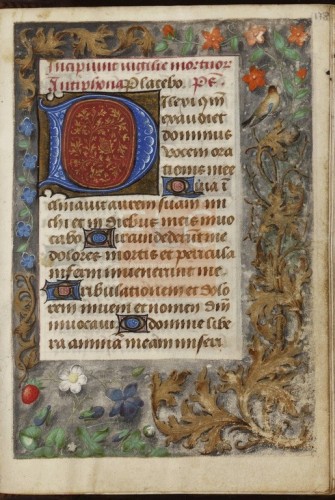 Incipiunt vigilie mortuor
Antiphona Placebo. Ps
Dilexi qm
exaudiet
dominus
vocem ora
tionis mee
Quia i
clinavit aurem suam mi
chi et in diebus meis invo
cabo Circundederūt me
dolores mortis et pericula
inferni invenerunt me
Tribulationem et dolo
rem inveni et nomen dm̄i
invocavi O domine libe
ra animā meam miseri